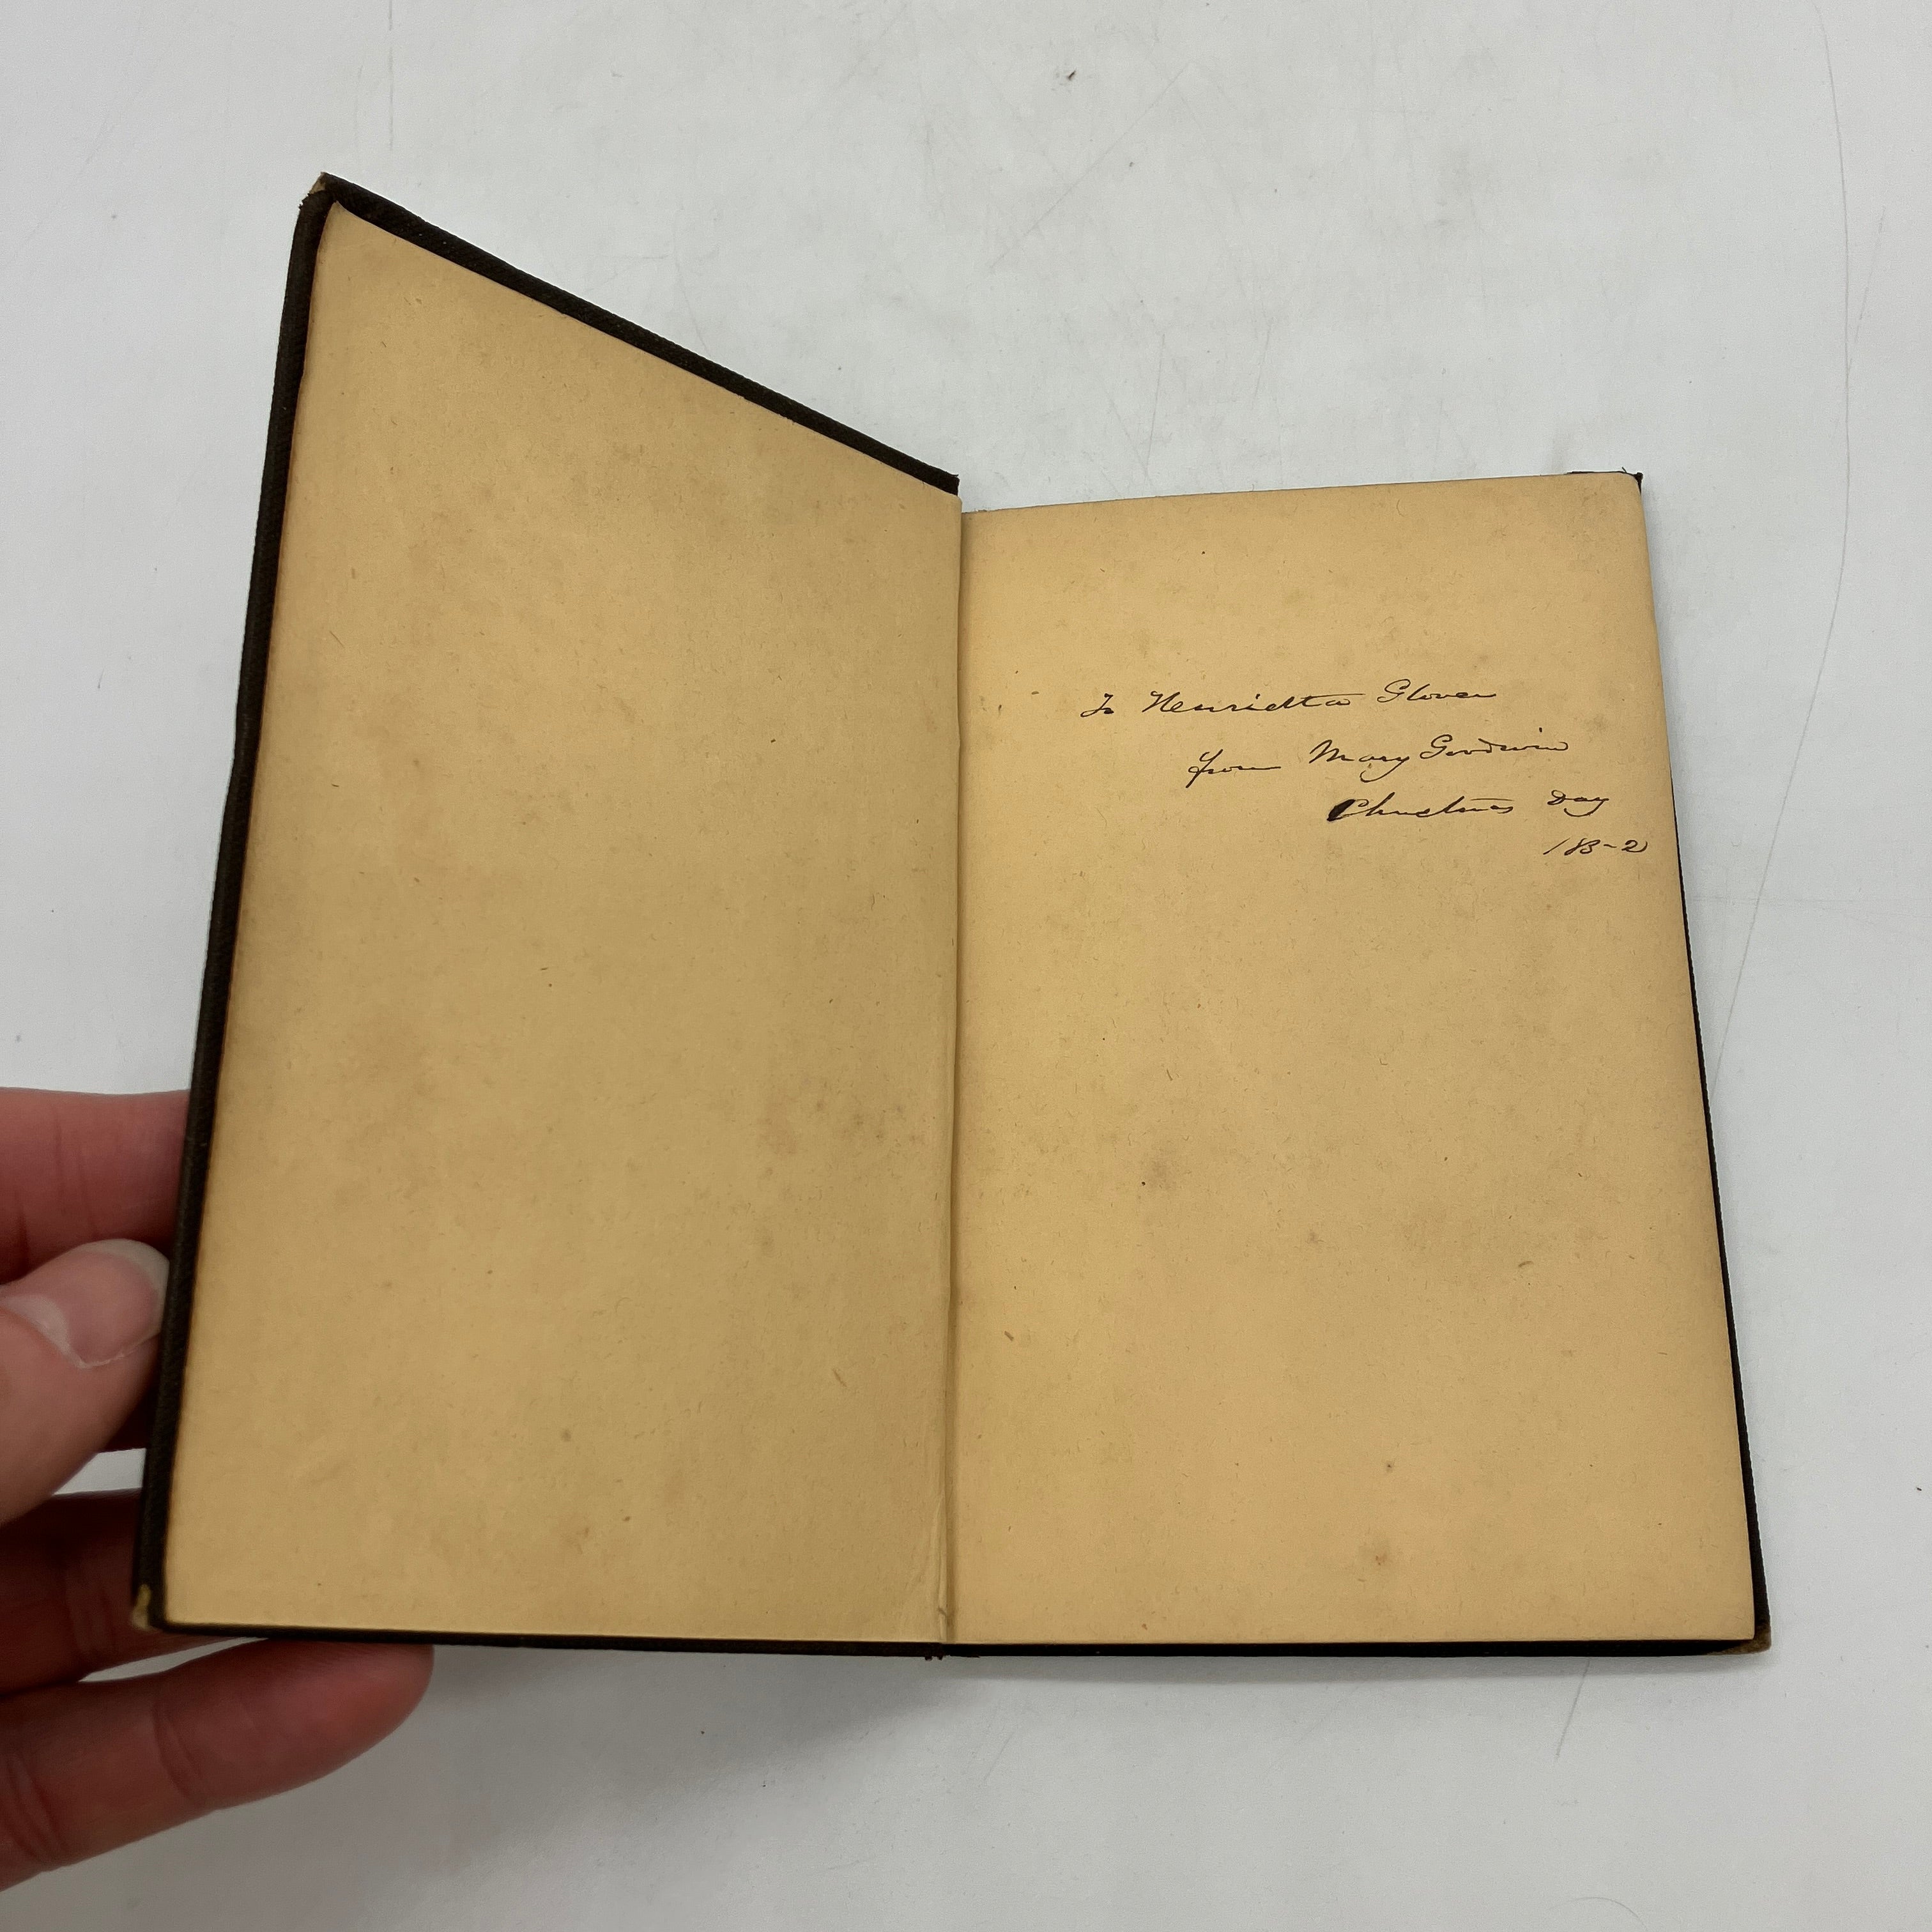 To Henrietta Glover
from Mary Goodwin
Christmas Day